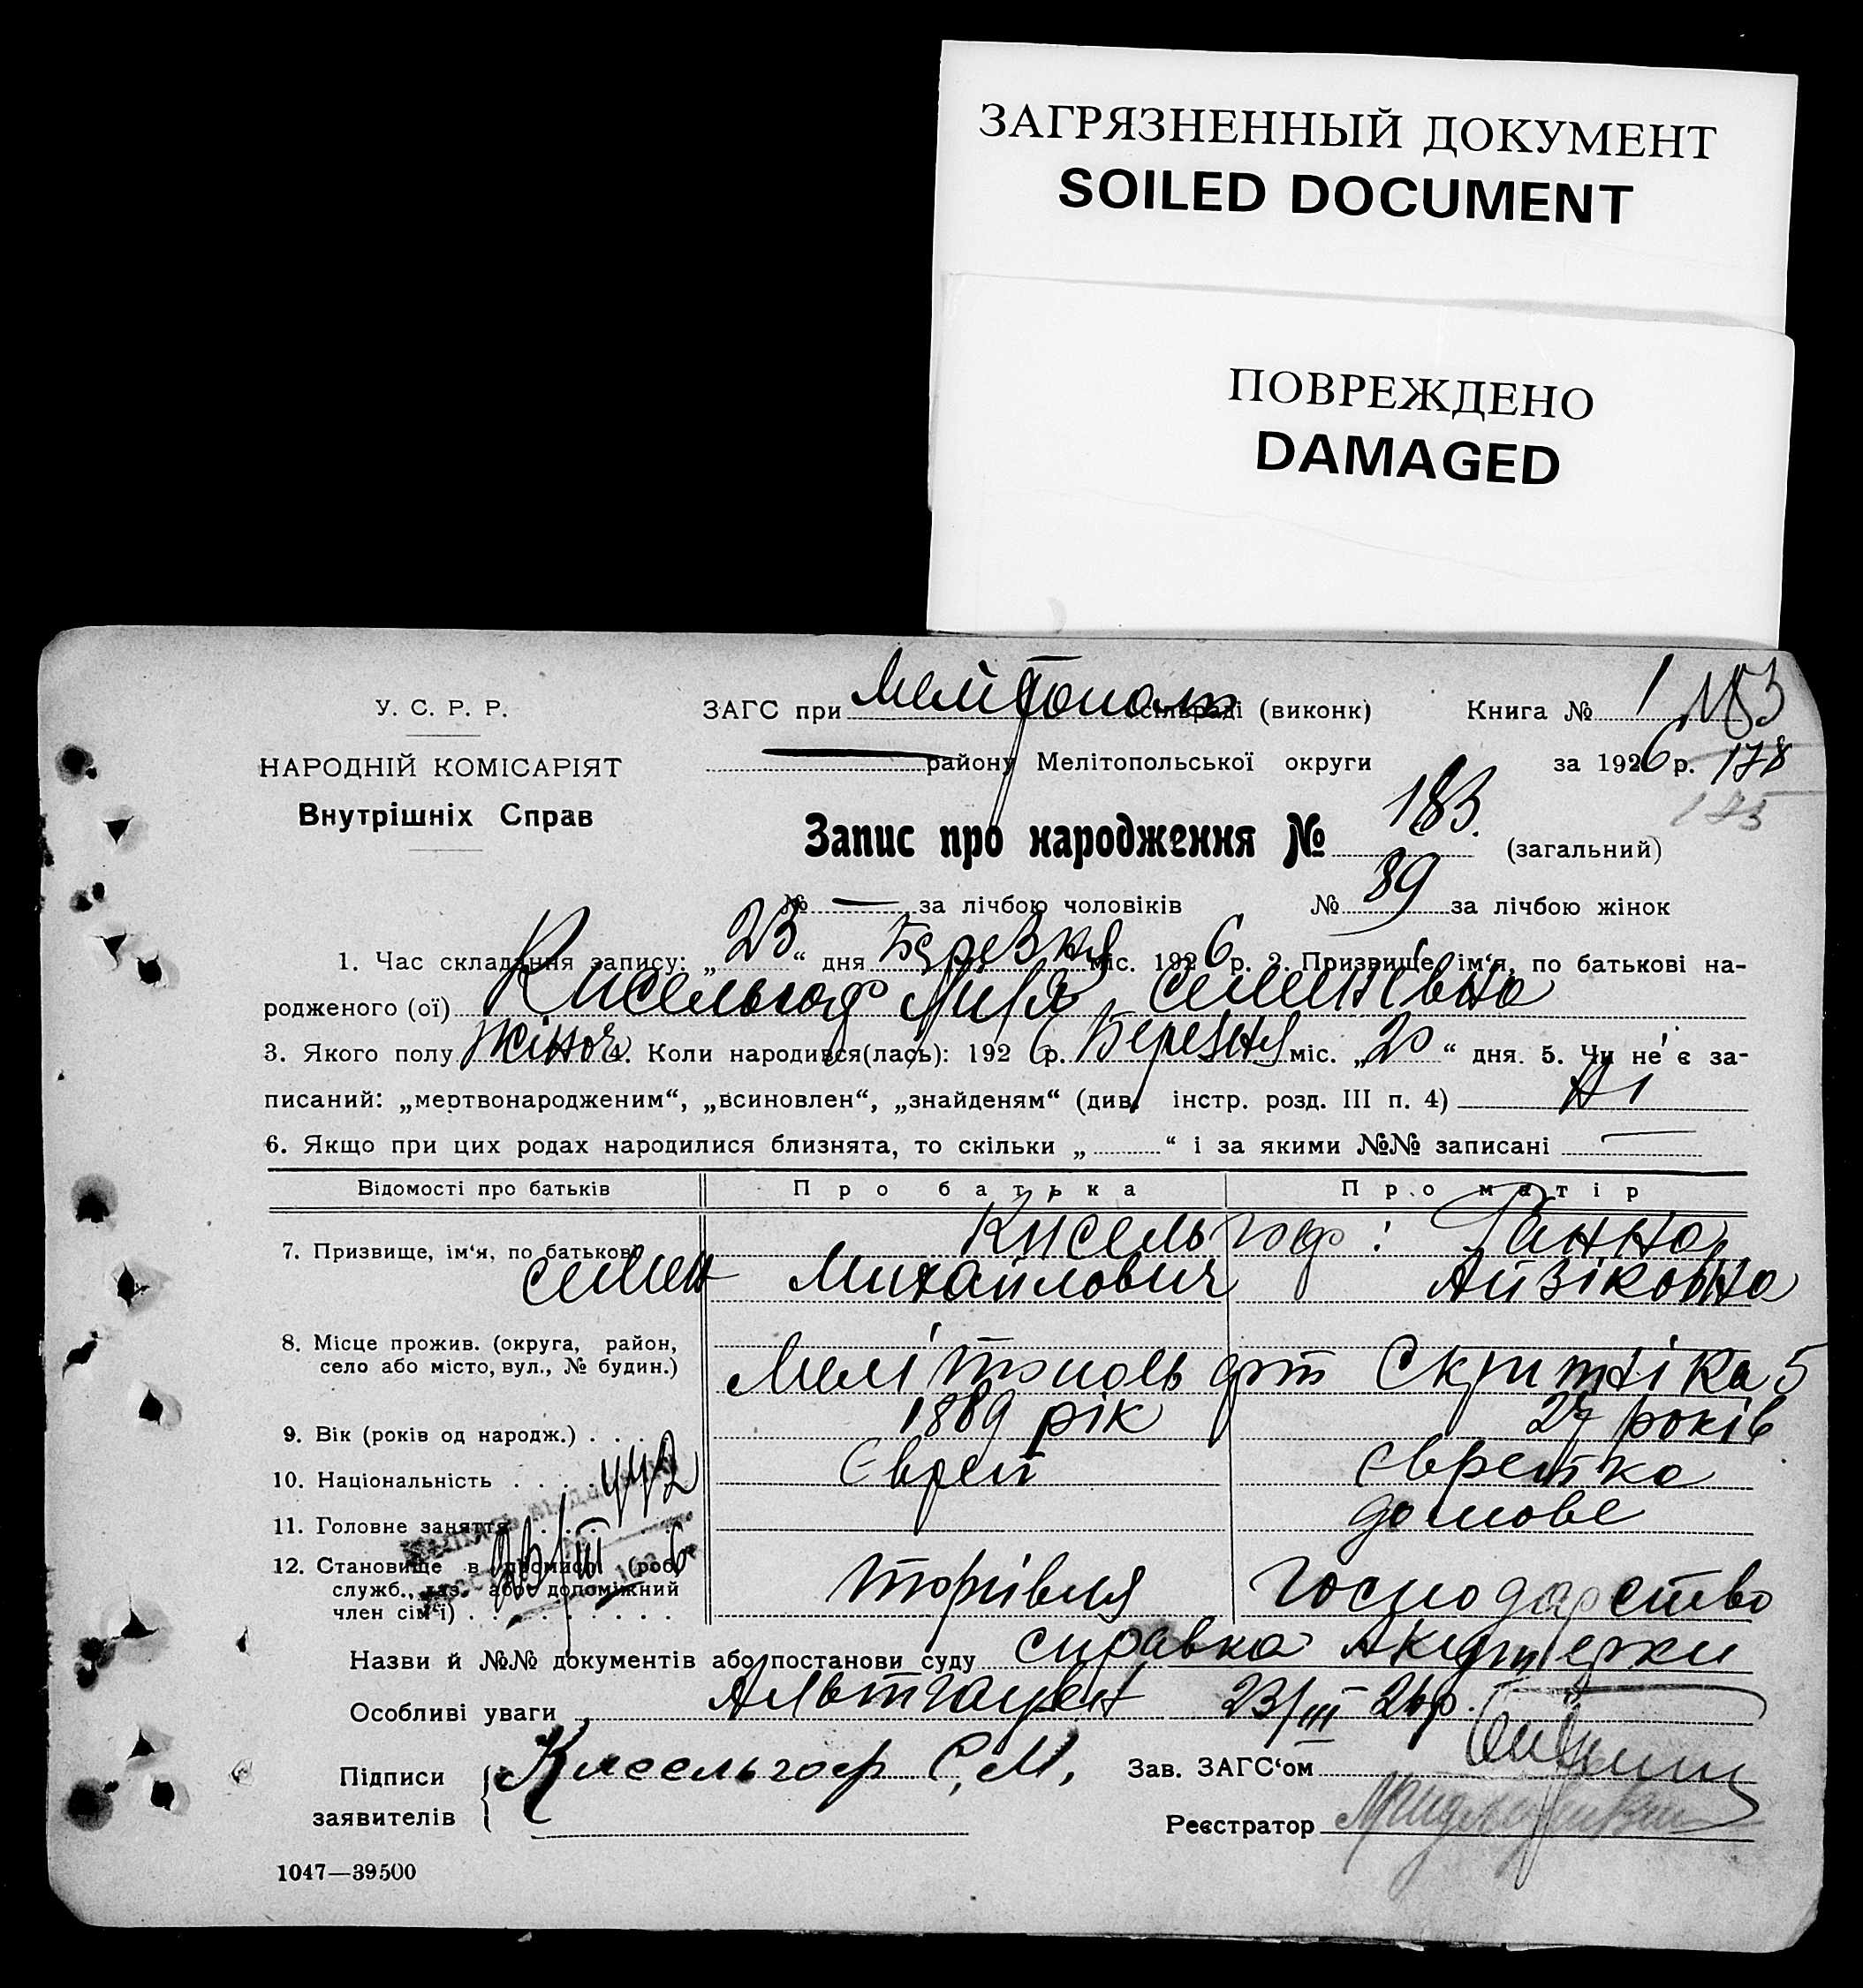 ЗАГРЯЗНЕННЫЙ ДОКУМЕНТ
SOILED DOCUMENT
ПОВРЕЖДЕНО
DAMAGED
У. С. Р. Р.
НАРОДНІЙ КОМІСАРІЯТ
Внутрішніх Справ
ЗАГС при сільраді (виконк) Книга № 1 183
району Мелітопольської округи за 1926 р. 178
175
Запис про народження № 183. (загальний)
№ — за лічбою чоловіків № 89 за лічбою жінок
1. Час складання запису: „23“ дня Березня міс. 1926 р. 2. Призвище, ім‘я, по батькові на-
родженого (ої) Кисельгоф Семенівна
3. Якого полу жіноч 4. Коли народився(лась): 1926 р. Березня міс. „20“ дня. 5. Чи не є за-
писаний: „мертвонародженим“, „всиновлен“, „знайденям“ (див. інстр. розд. III п. 4) Ні
6. Якщо при цих родах народилися близнята, то скільки „ “ і за якими №№ записані —
Відомості про батьків Про батька Про матір
7. Призвище, ім‘я, по батькові Кисельгоф: Ганна
Семен Михайлович Айзіковна
8. Місце прожив. (округа, район,
село або місто, вул., № будин.) Мелітополь 5
9. Вік (років од народж.) . . . . 1889 рік 29 років
10. Національність . . . Єврей Єврейка
442
11. Головне заняття . . . . домове
12. Становище в промислі (роб.
служб., хаз. або допоміжний
член сім‘ї) . . . . . . . . . торгівля господарство
Назви й №№ документів або постанови суду справка Акушерки
Особливі уваги Альтгаузен 23/III 26 р.
Підписи
заявителів Кисельгоф С. М. Зав. ЗАГС‘ом
Реєстратор
1047—39500